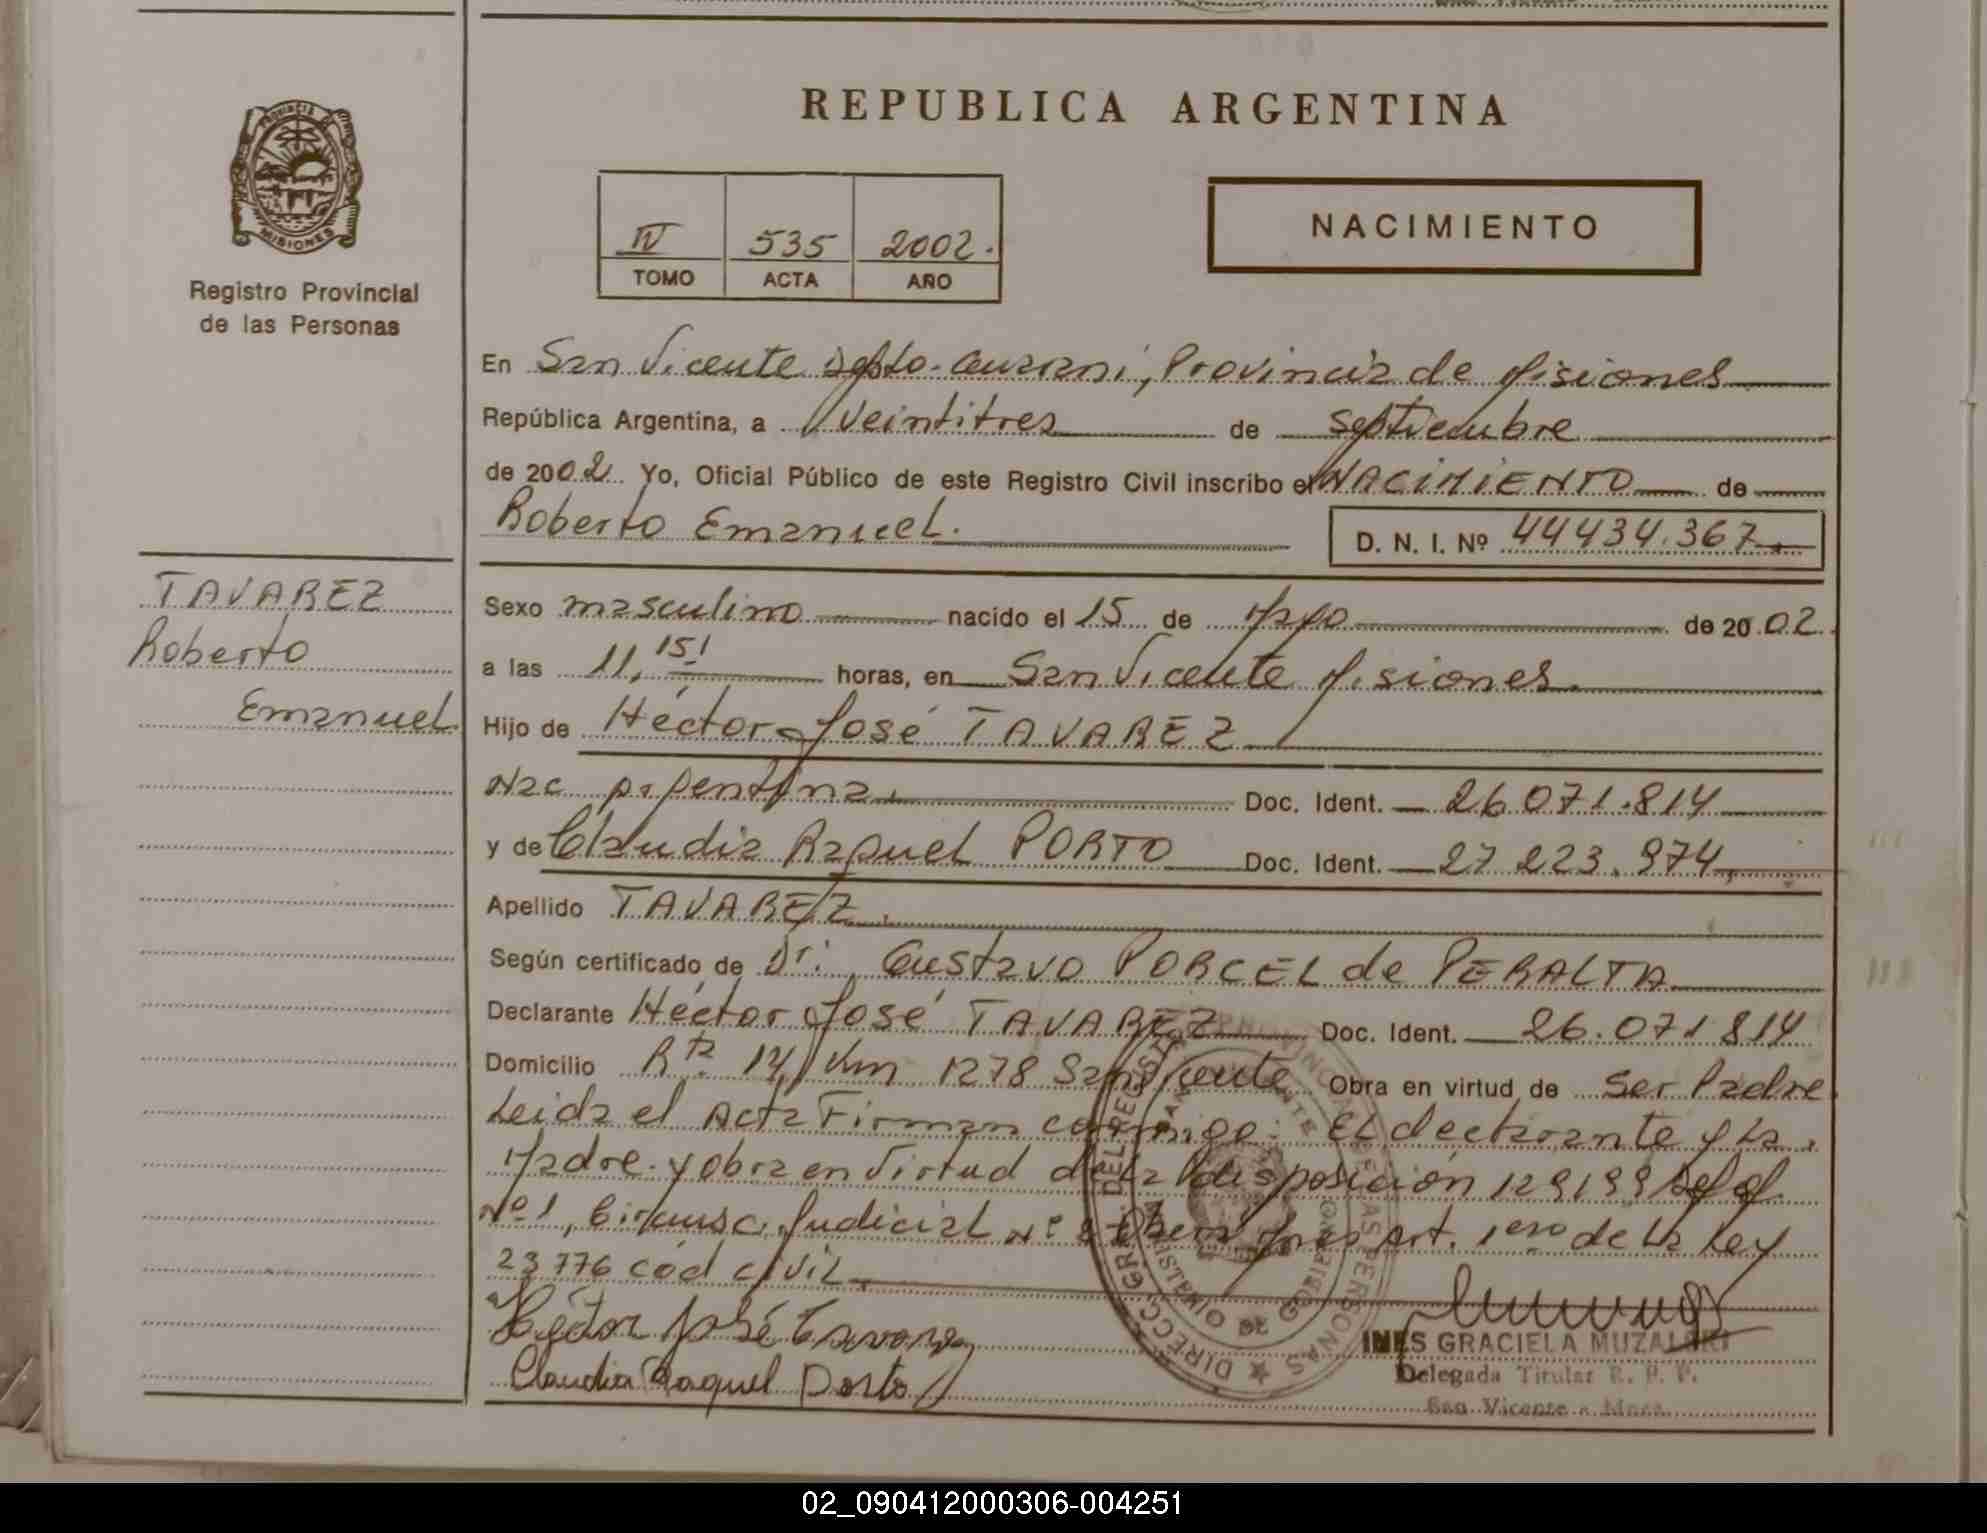 REPUBLICA ARGENTINA
PROVINCIA DE
MISIONES
Registro Provincial
de las Personas
IV 535 2002.
TOMO ACTA AÑO
NACIMIENTO
En San Vicente Dpto. Guarani, Provincia de Misiones
República Argentina, a Veintitres de Septiembre
de 2002 Yo, Oficial Público de este Registro Civil inscribo el NACIMIENTO de
Roberto Emanuel.
D. N. I. Nº 44434.367.
TAVAREZ
Roberto
Emanuel.
Sexo masculino nacido el 15 de Mayo de 2002.
a las 11,15! horas, en San Vicente Misiones.
Hijo de Héctor José TAVAREZ
Nac Argentina. Doc. Ident. 26.071.814
y de Claudia Raquel PORTO Doc. Ident. 27.223.974.
Apellido TAVAREZ.
Según certificado de Dr. Gustavo PORCEL de PERALTA
Declarante Héctor José TAVAREZ Doc. Ident. 26.071814
Domicilio Rta. 14, Km 1278 San Vicente Obra en virtud de Ser Padre
Leida el Acta Firman conmigo: El declarante y La
Madre. y obra en Virtud de La disposición 129199 Def of.
Nº 1, Circunsc. Judicial Nº 2 art. 1ero de La Ley
23776 cód civil.
Héctor José Tavarez
Claudia Raquel Porto
DIRECC. GRAL. DEL REGISTRO PROVINCIAL DE LAS PERSONAS
MINISTERIO DE GOBIERNO
SAN VICENTE
INES GRACIELA MUZALSKI
Delegada Titular R. P. P.
San Vicente - Mnes.
02_090412000306-004251